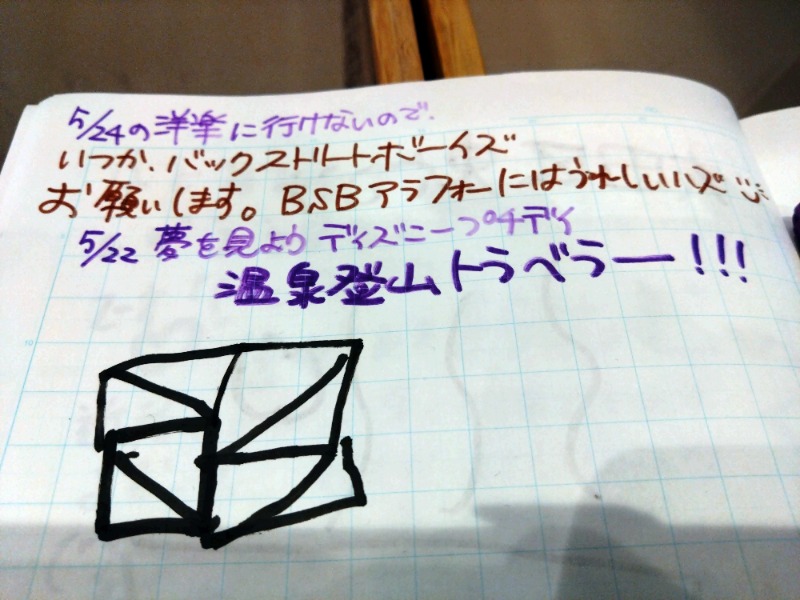 5/24の洋楽に行けないので.
いつか、バックストリートボーイズ
お願いします。BSBアラフォーにはうれしいハズ
5/22 夢を見よう ディズニープチデイ
温泉登山トラベラー!!!